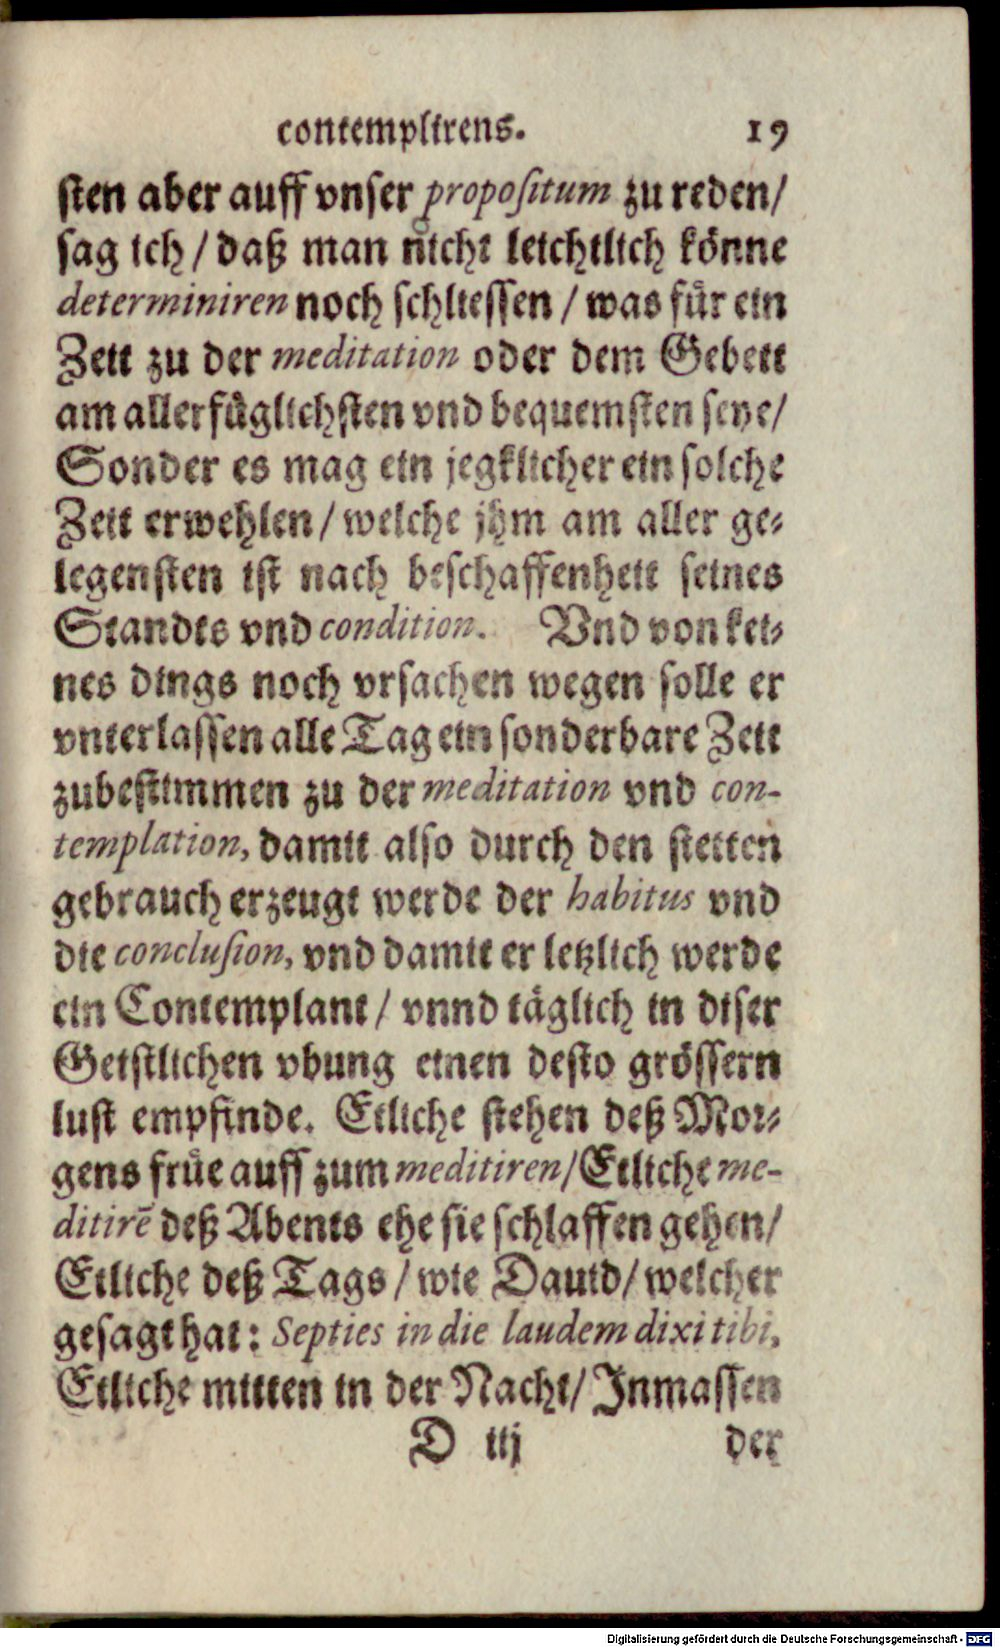 contemplirens. 19
sten aber auff vnser propositum zu reden/
sag ich / daß man nicht leichtlich könne
determiniren noch schliessen / was für ein
Zeit zu der meditation oder dem Gebett
am allerfüglichsten vnd bequemsten seye/
Sonder es mag ein jegklicher ein solche
Zeit erwehlen / welche jhm am aller ge-
legensten ist nach beschaffenheit seines
Standts vnd condition. Vnd von kei-
nes dings noch vrsachen wegen solle er
vnterlassen alle Tag ein sonderbare Zeit
zubestimmen zu der meditation vnd con-
templation, damit also durch den stetten
gebrauch erzeugt werde der habitus vnd
die conclusion, vnd damit er letzlich werde
ein Contemplant / vnnd täglich in diser
Geistlichen vbung einen desto grössern
lust empfinde. Etliche stehen deß Mor-
gens früe auff zum meditiren/ Etliche me-
ditirē deß Abents ehe sie schlaffen gehen/
Etliche deß Tags / wie Dauid / welcher
gesagt hat: Septies in die laudem dixi tibi,
Etliche mitten in der Nacht/ Inmassen
D iij der
Digitalisierung gefördert durch die Deutsche Forschungsgemeinschaft - DFG